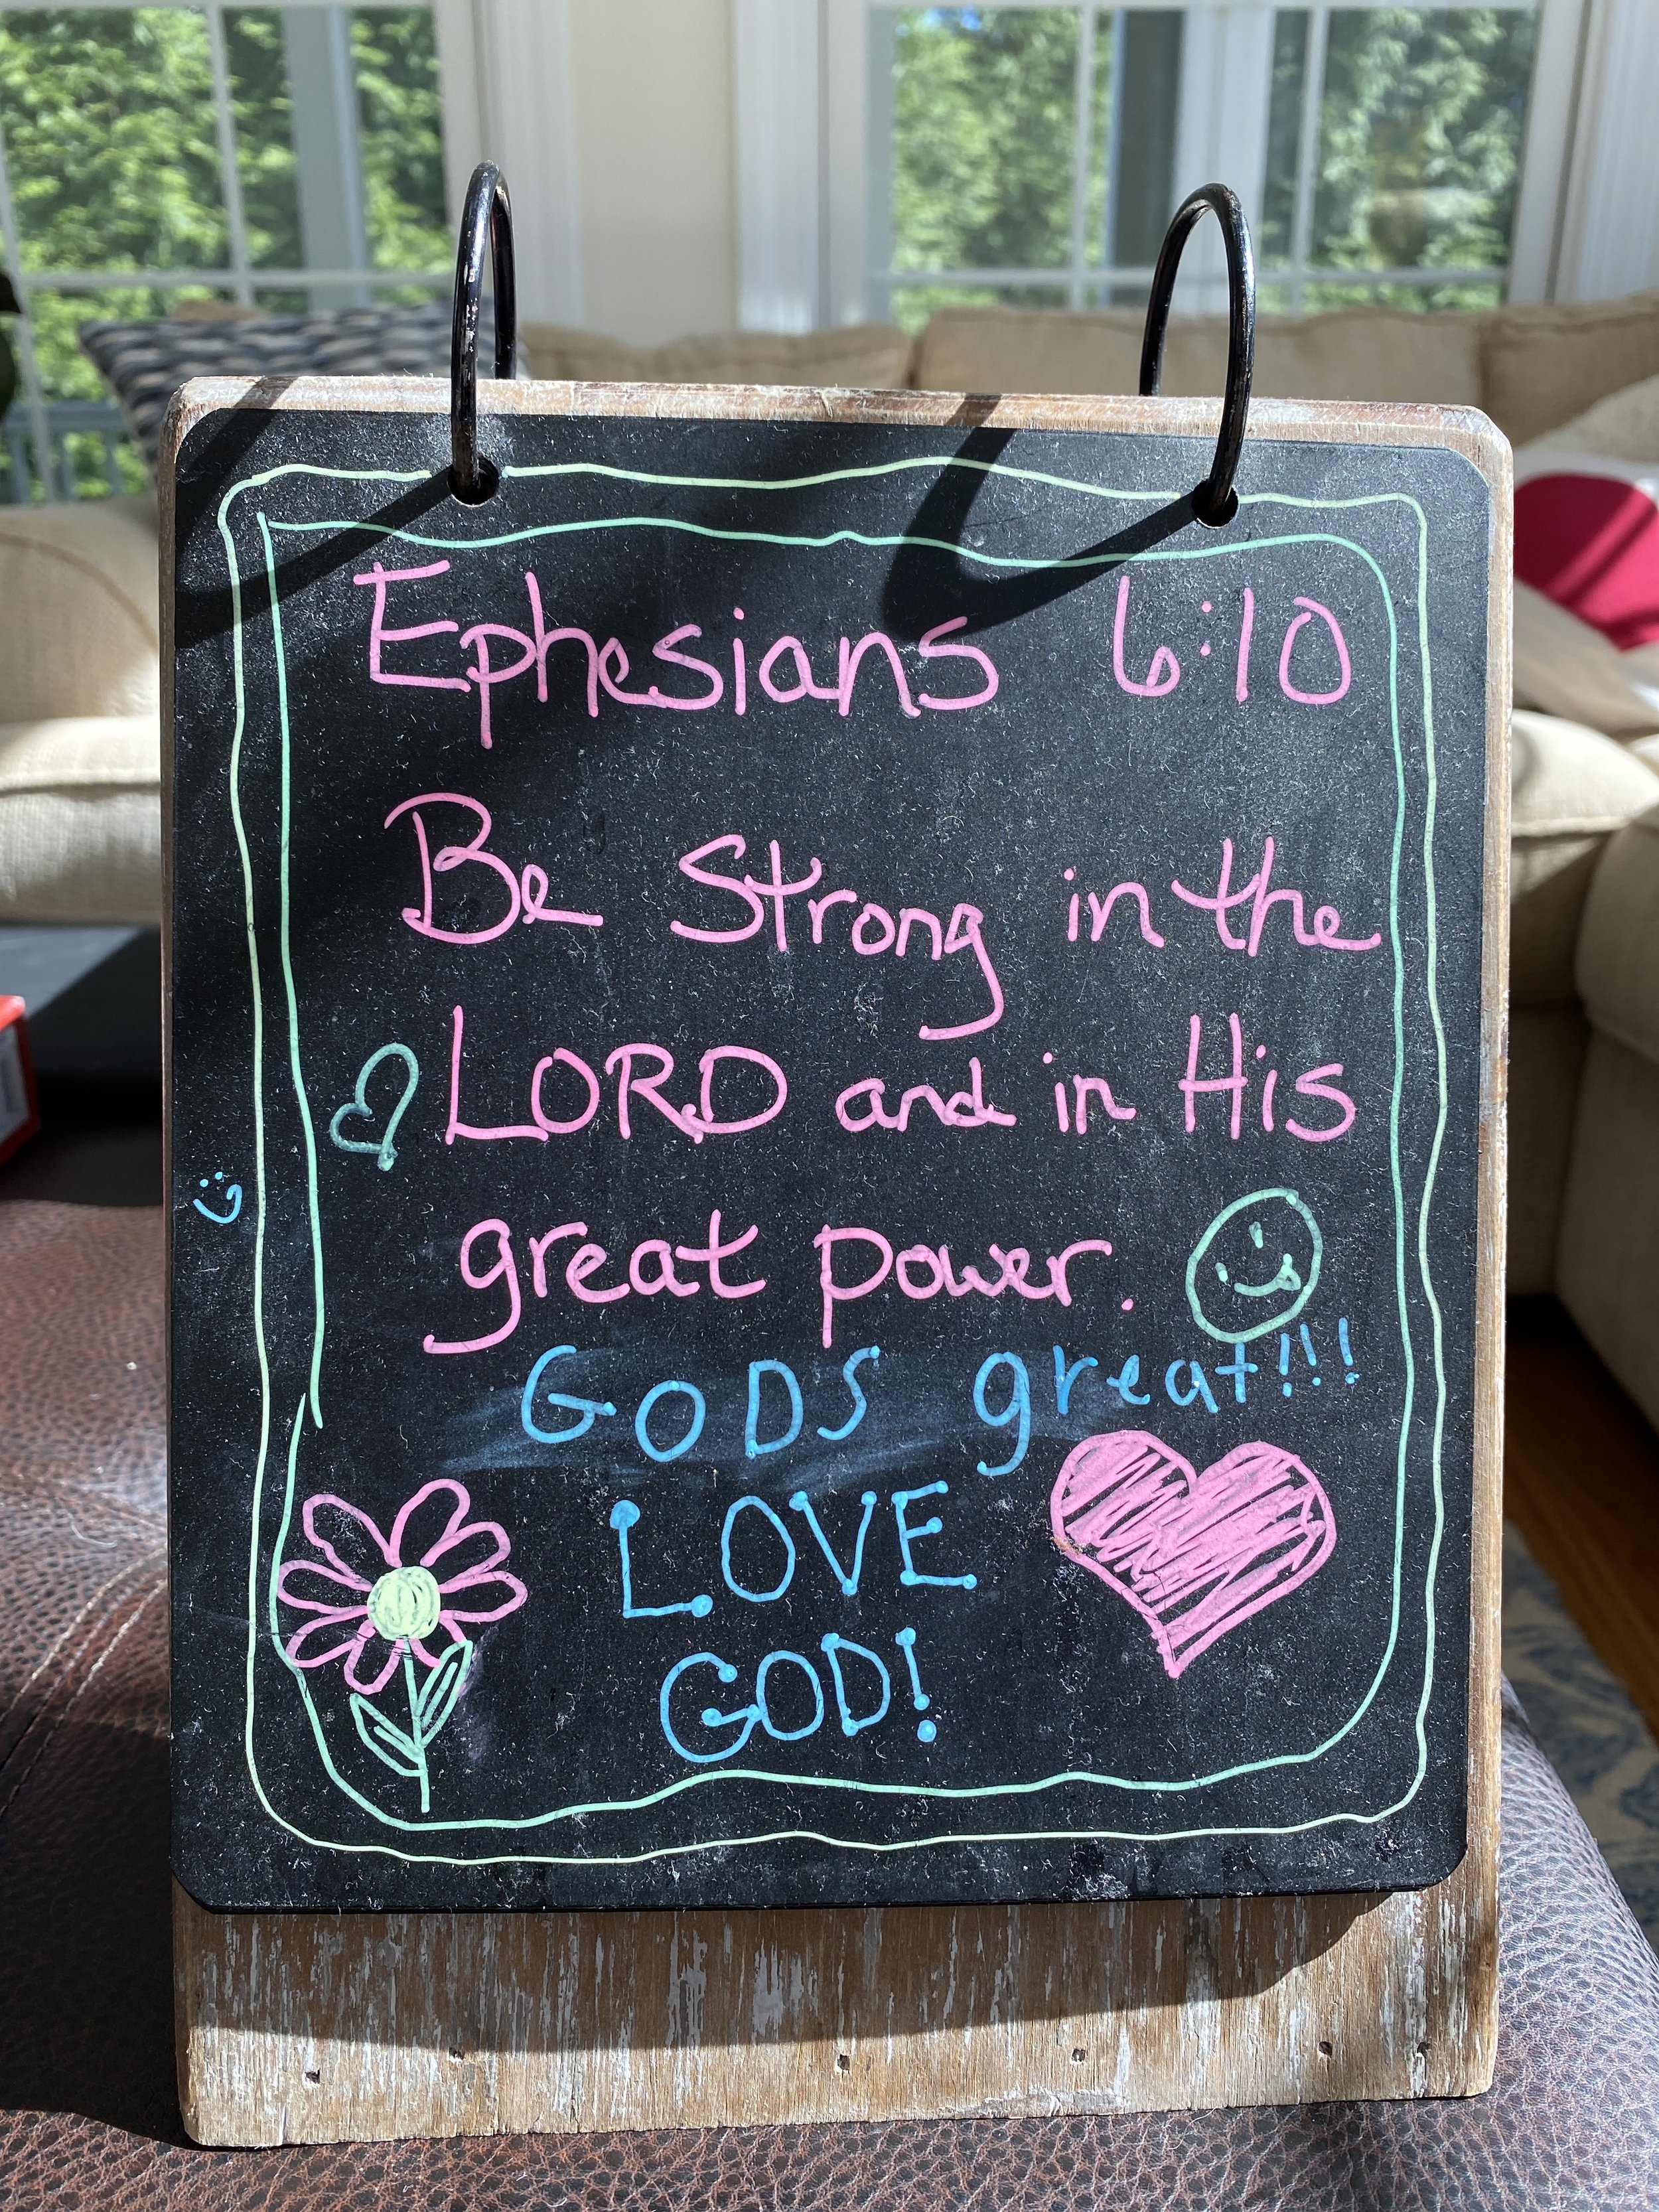 Ephesians 6:10
Be Strong in the
LORD and in His
great power.
GODS great!!!
LOVE
GOD!